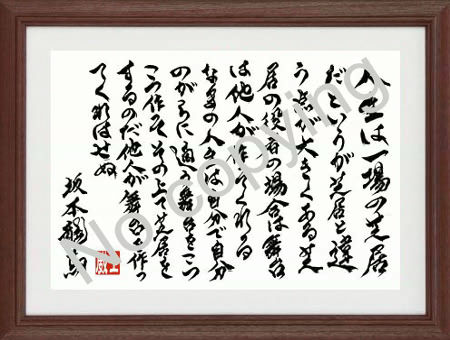 人生は一場の芝居
だというが芝居と違
う点が大きくある芝
居の役者の場合は舞台
は他人が作ってくれる
なまの人生は自分で自分
のがらに適う舞台をこつ
こつ作ってその上で芝居を
するのだ他人が舞台を作っ
てくれはせぬ
坂本龍馬
No copying